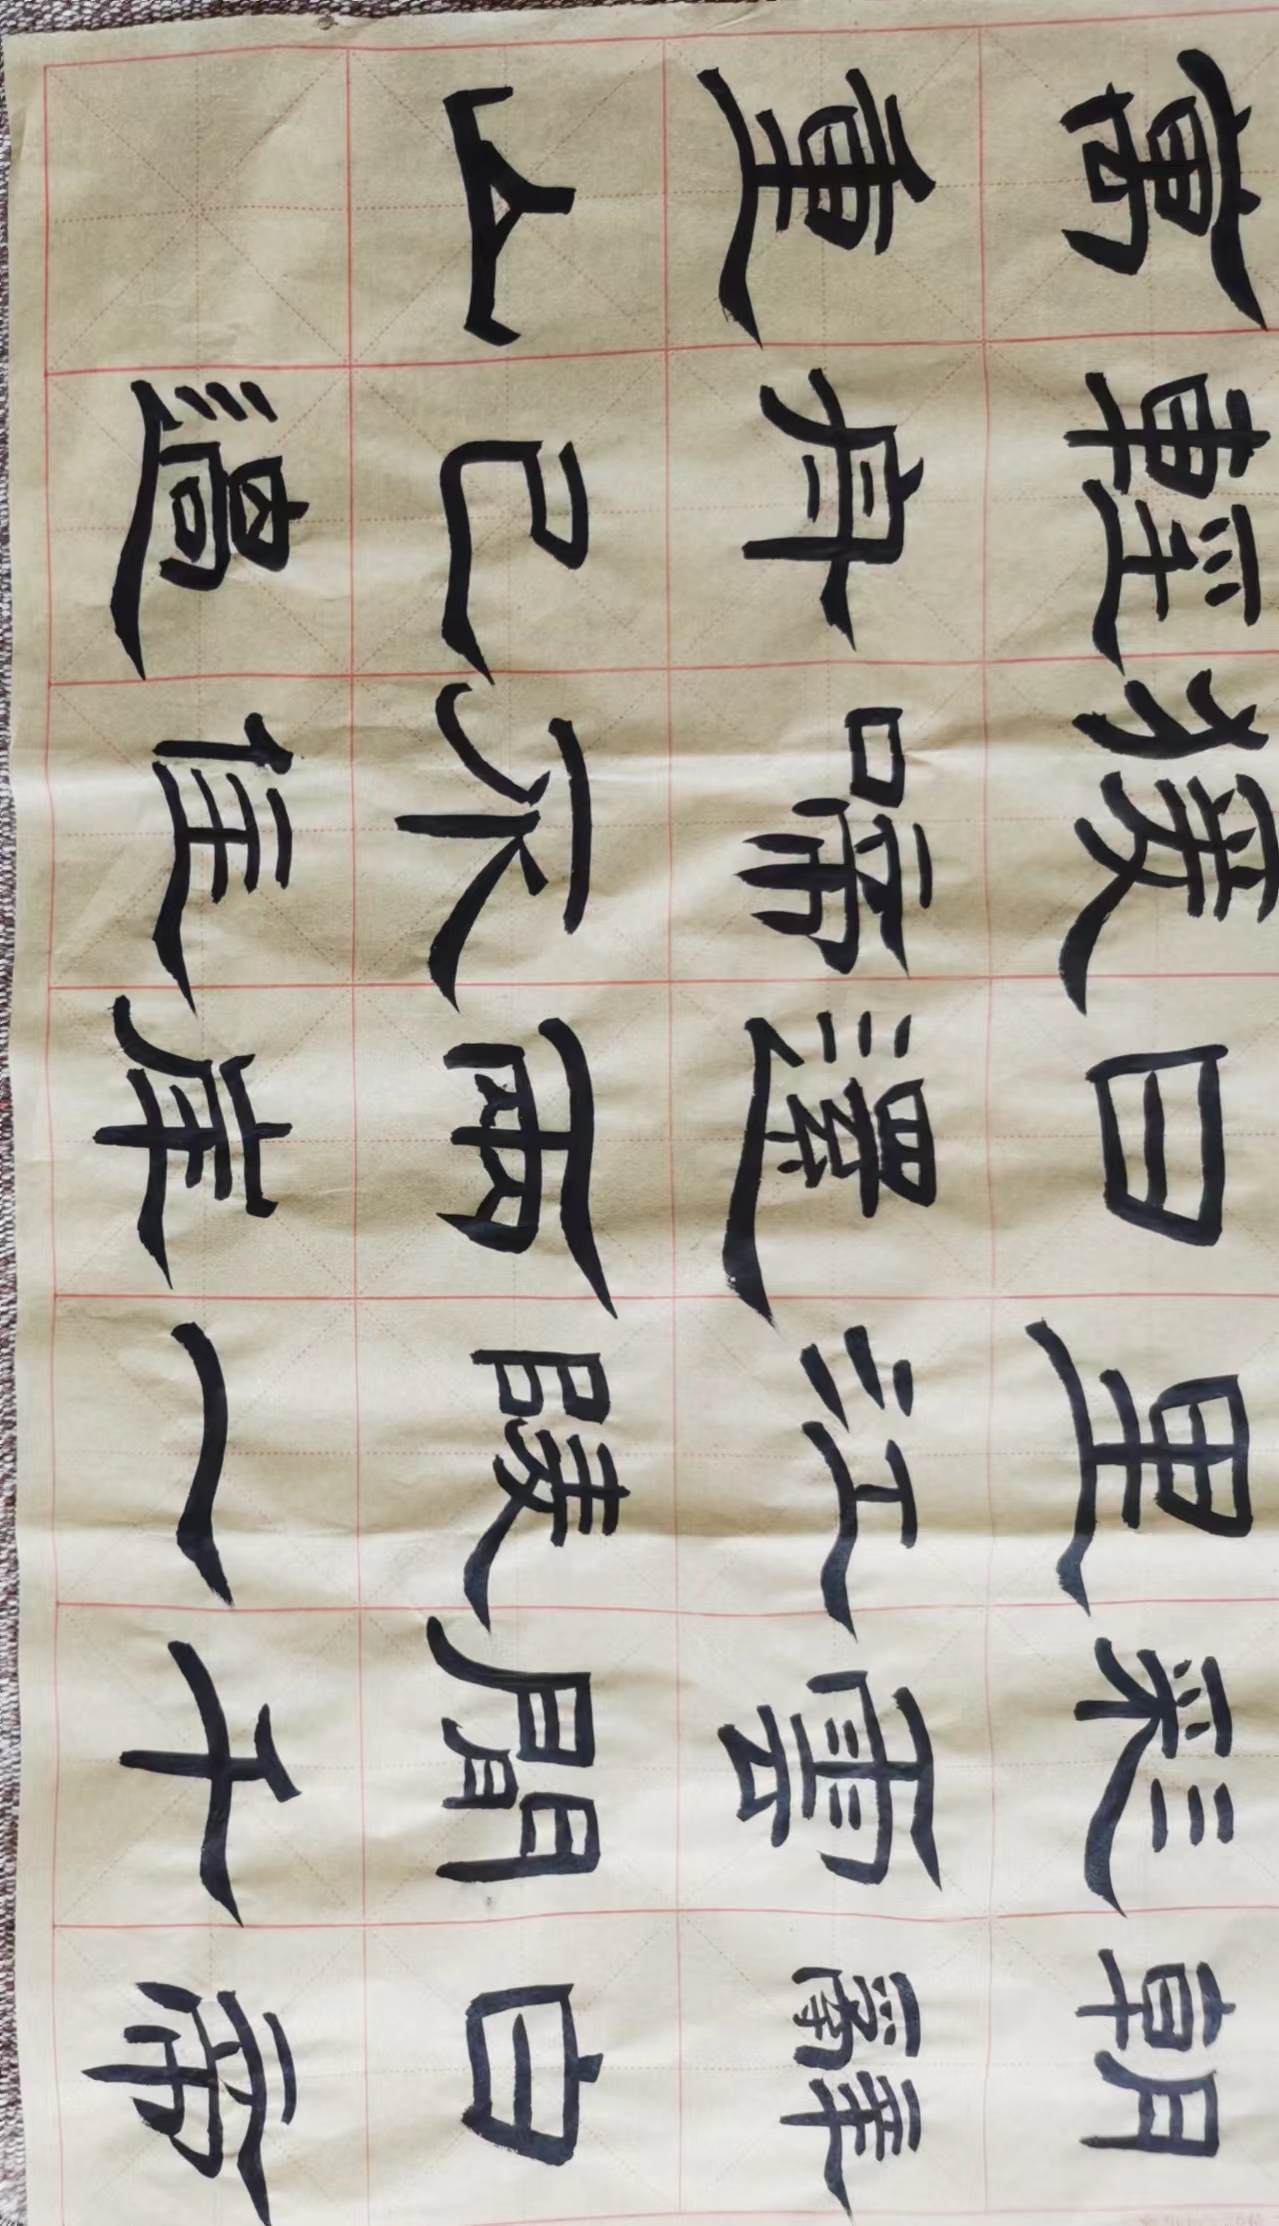 朝辭白帝
彩雲間千
里江陵一
日還兩岸
猨啼不住
輕舟已過
萬重山